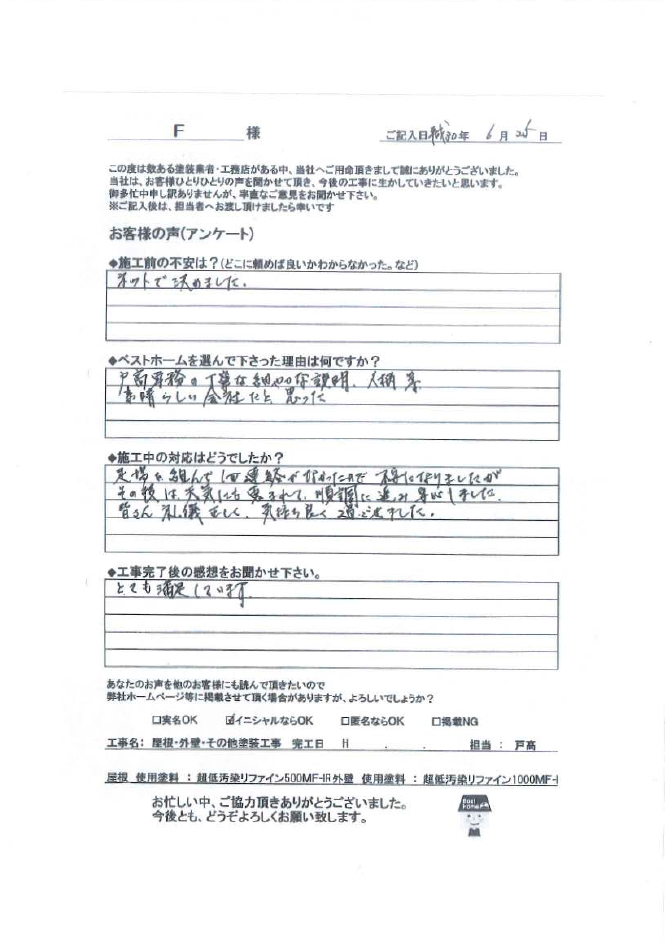 F 様
ご記入日 平成30年 6月 25日
この度は数ある塗装業者・工務店がある中、当社へご用命頂きまして誠にありがとうございました。
当社は、お客様ひとりひとりの声を聞かせて頂き、今後の工事に生かしていきたいと思います。
御多忙中申し訳ありませんが、率直なご意見をお聞かせ下さい。
※ご記入後は、担当者へお渡し頂けましたら幸いです
お客様の声(アンケート)
◆施工前の不安は?(どこに頼めば良いかわからなかった。など)
ネットで決めました。
◆ベストホームを選んで下さった理由は何ですか?
戸高専務の丁寧な細やかな説明、人柄等
素晴らしい会社だと思った
◆施工中の対応はどうでしたか?
足場を組んで1回連絡がなかったので不安になりましたが
その後は天気にも恵まれて、順調に進み安心しました。
皆さん礼儀正しく、気持ち良く過ごせました。
◆工事完了後の感想をお聞かせ下さい。
とても満足しています
あなたのお声を他のお客様にも読んで頂きたいので
弊社ホームページ等に掲載させて頂く場合がありますが、よろしいでしょうか?
□実名OK ☑イニシャルならOK □匿名ならOK □掲載NG
工事名: 屋根・外壁・その他塗装工事 完工日 H . . 担当 : 戸高
屋根 使用塗料 : 超低汚染リファイン500MF-IR 外壁 使用塗料 : 超低汚染リファイン1000MF-I
お忙しい中、ご協力頂きありがとうございました。
今後とも、どうぞよろしくお願い致します。
Best
Home